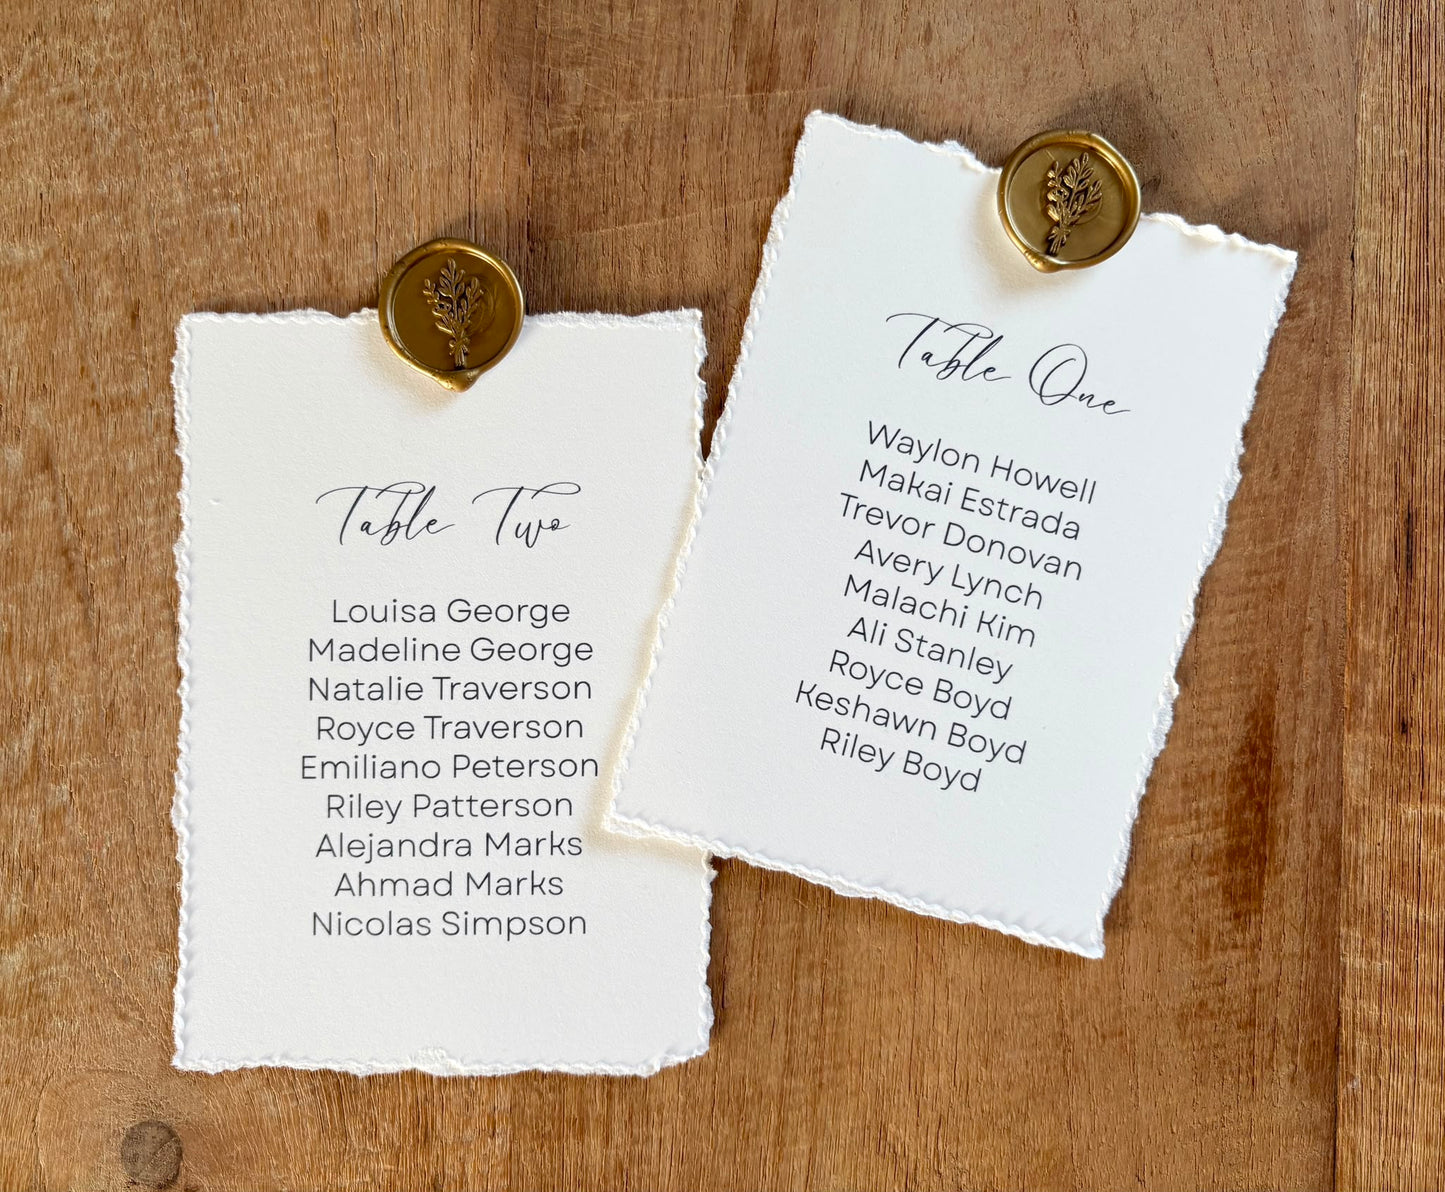 Table Two
Louisa George
Madeline George
Natalie Traverson
Royce Traverson
Emiliano Peterson
Riley Patterson
Alejandra Marks
Ahmad Marks
Nicolas Simpson
Table One
Waylon Howell
Makai Estrada
Trevor Donovan
Avery Lynch
Malachi Kim
Ali Stanley
Royce Boyd
Keshawn Boyd
Riley Boyd